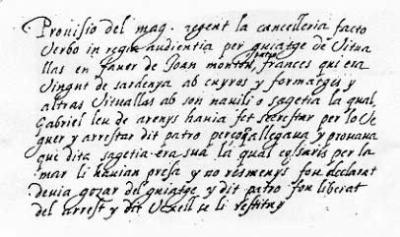 Prouisio del mag. regent la cancelleria facto
Verbo in regia audientia per guiatge de Vitua
llas en fauer de Joan monton patro frances qui era
Vingut de sardenya ab cuyros y formatges y
altras Vituallas ab son nauili o sagetia la qual
Gabriel leu de arenys hauia fet secrestar per lo Ve
guer y arrestar dit patro perque allegaua y prouaua
que dita sagetia era sua la qual cossaris per la
mar li hauian presa y no resmenys fou declarat
deuia gozar del guiatge y dit patro fou liberat
del arrest y dit Vexell se li restituy